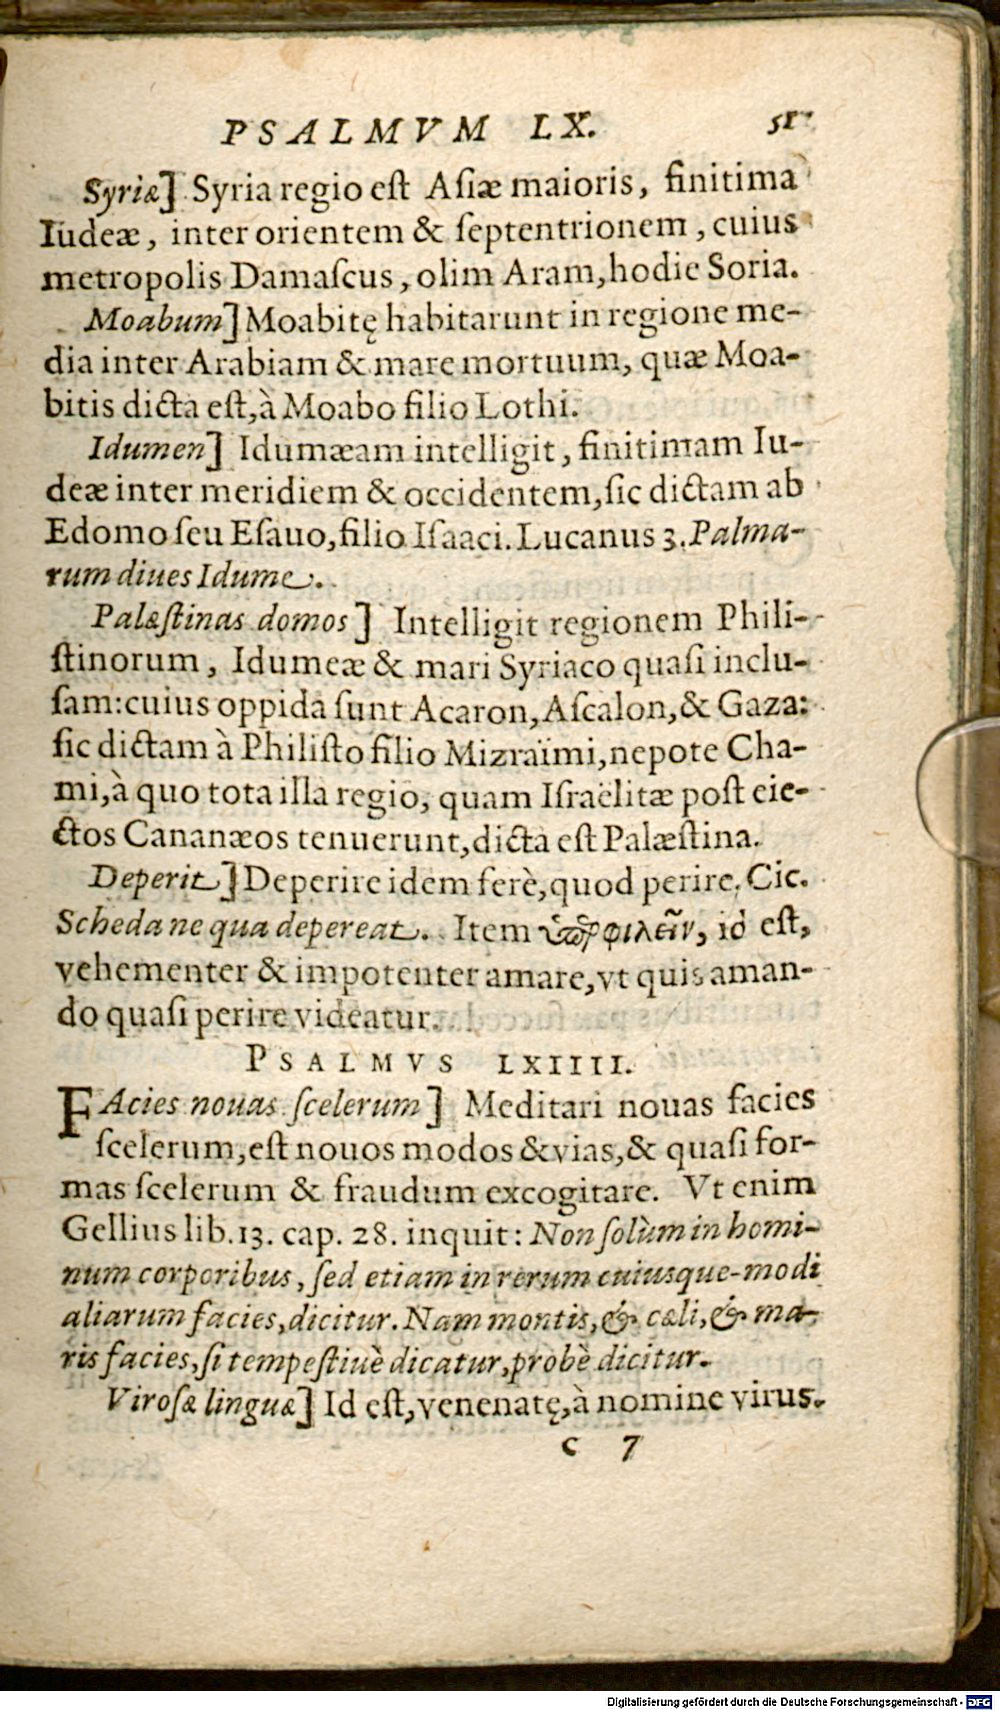 PSALMVM LX. 51
Syriæ] Syria regio est Asiæ maioris, finitima
Iudeæ, inter orientem & septentrionem, cuius
metropolis Damascus, olim Aram, hodie Soria.
Moabum] Moabitę habitarunt in regione me-
dia inter Arabiam & mare mortuum, quæ Moa-
bitis dicta est, à Moabo filio Lothi.
Idumen] Idumæam intelligit, finitimam Iu-
deæ inter meridiem & occidentem, sic dictam ab
Edomo seu Esauo, filio Isaaci. Lucanus 3. Palma-
rum diues Idume.
Palæstinas domos] Intelligit regionem Phili-
stinorum, Idumeæ & mari Syriaco quasi inclu-
sam: cuius oppida sunt Acaron, Ascalon, & Gaza:
sic dictam à Philisto filio Mizraïmi, nepote Cha-
mi, à quo tota illa regio, quam Israëlitæ post eie-
ctos Cananæos tenuerunt, dicta est Palæstina.
Deperit] Deperire idem ferè, quod perire. Cic.
Scheda ne qua depereat. Item ὑπερφιλεῖν, id est,
vehementer & impotenter amare, vt quis aman-
do quasi perire videatur.
PSALMVS LXIIII.
FAcies nouas scelerum] Meditari nouas facies
scelerum, est nouos modos & vias, & quasi for-
mas scelerum & fraudum excogitare. Vt enim
Gellius lib. 13. cap. 28. inquit: Non solùm in homi-
num corporibus, sed etiam in rerum cuiusque-modi
aliarum facies, dicitur. Nam montis, & cæli, & ma-
ris facies, si tempestiuè dicatur, probè dicitur.
Virosæ linguæ] Id est, venenatę, à nomine virus.
C 7
Digitalisierung gefördert durch die Deutsche Forschungsgemeinschaft - DFG